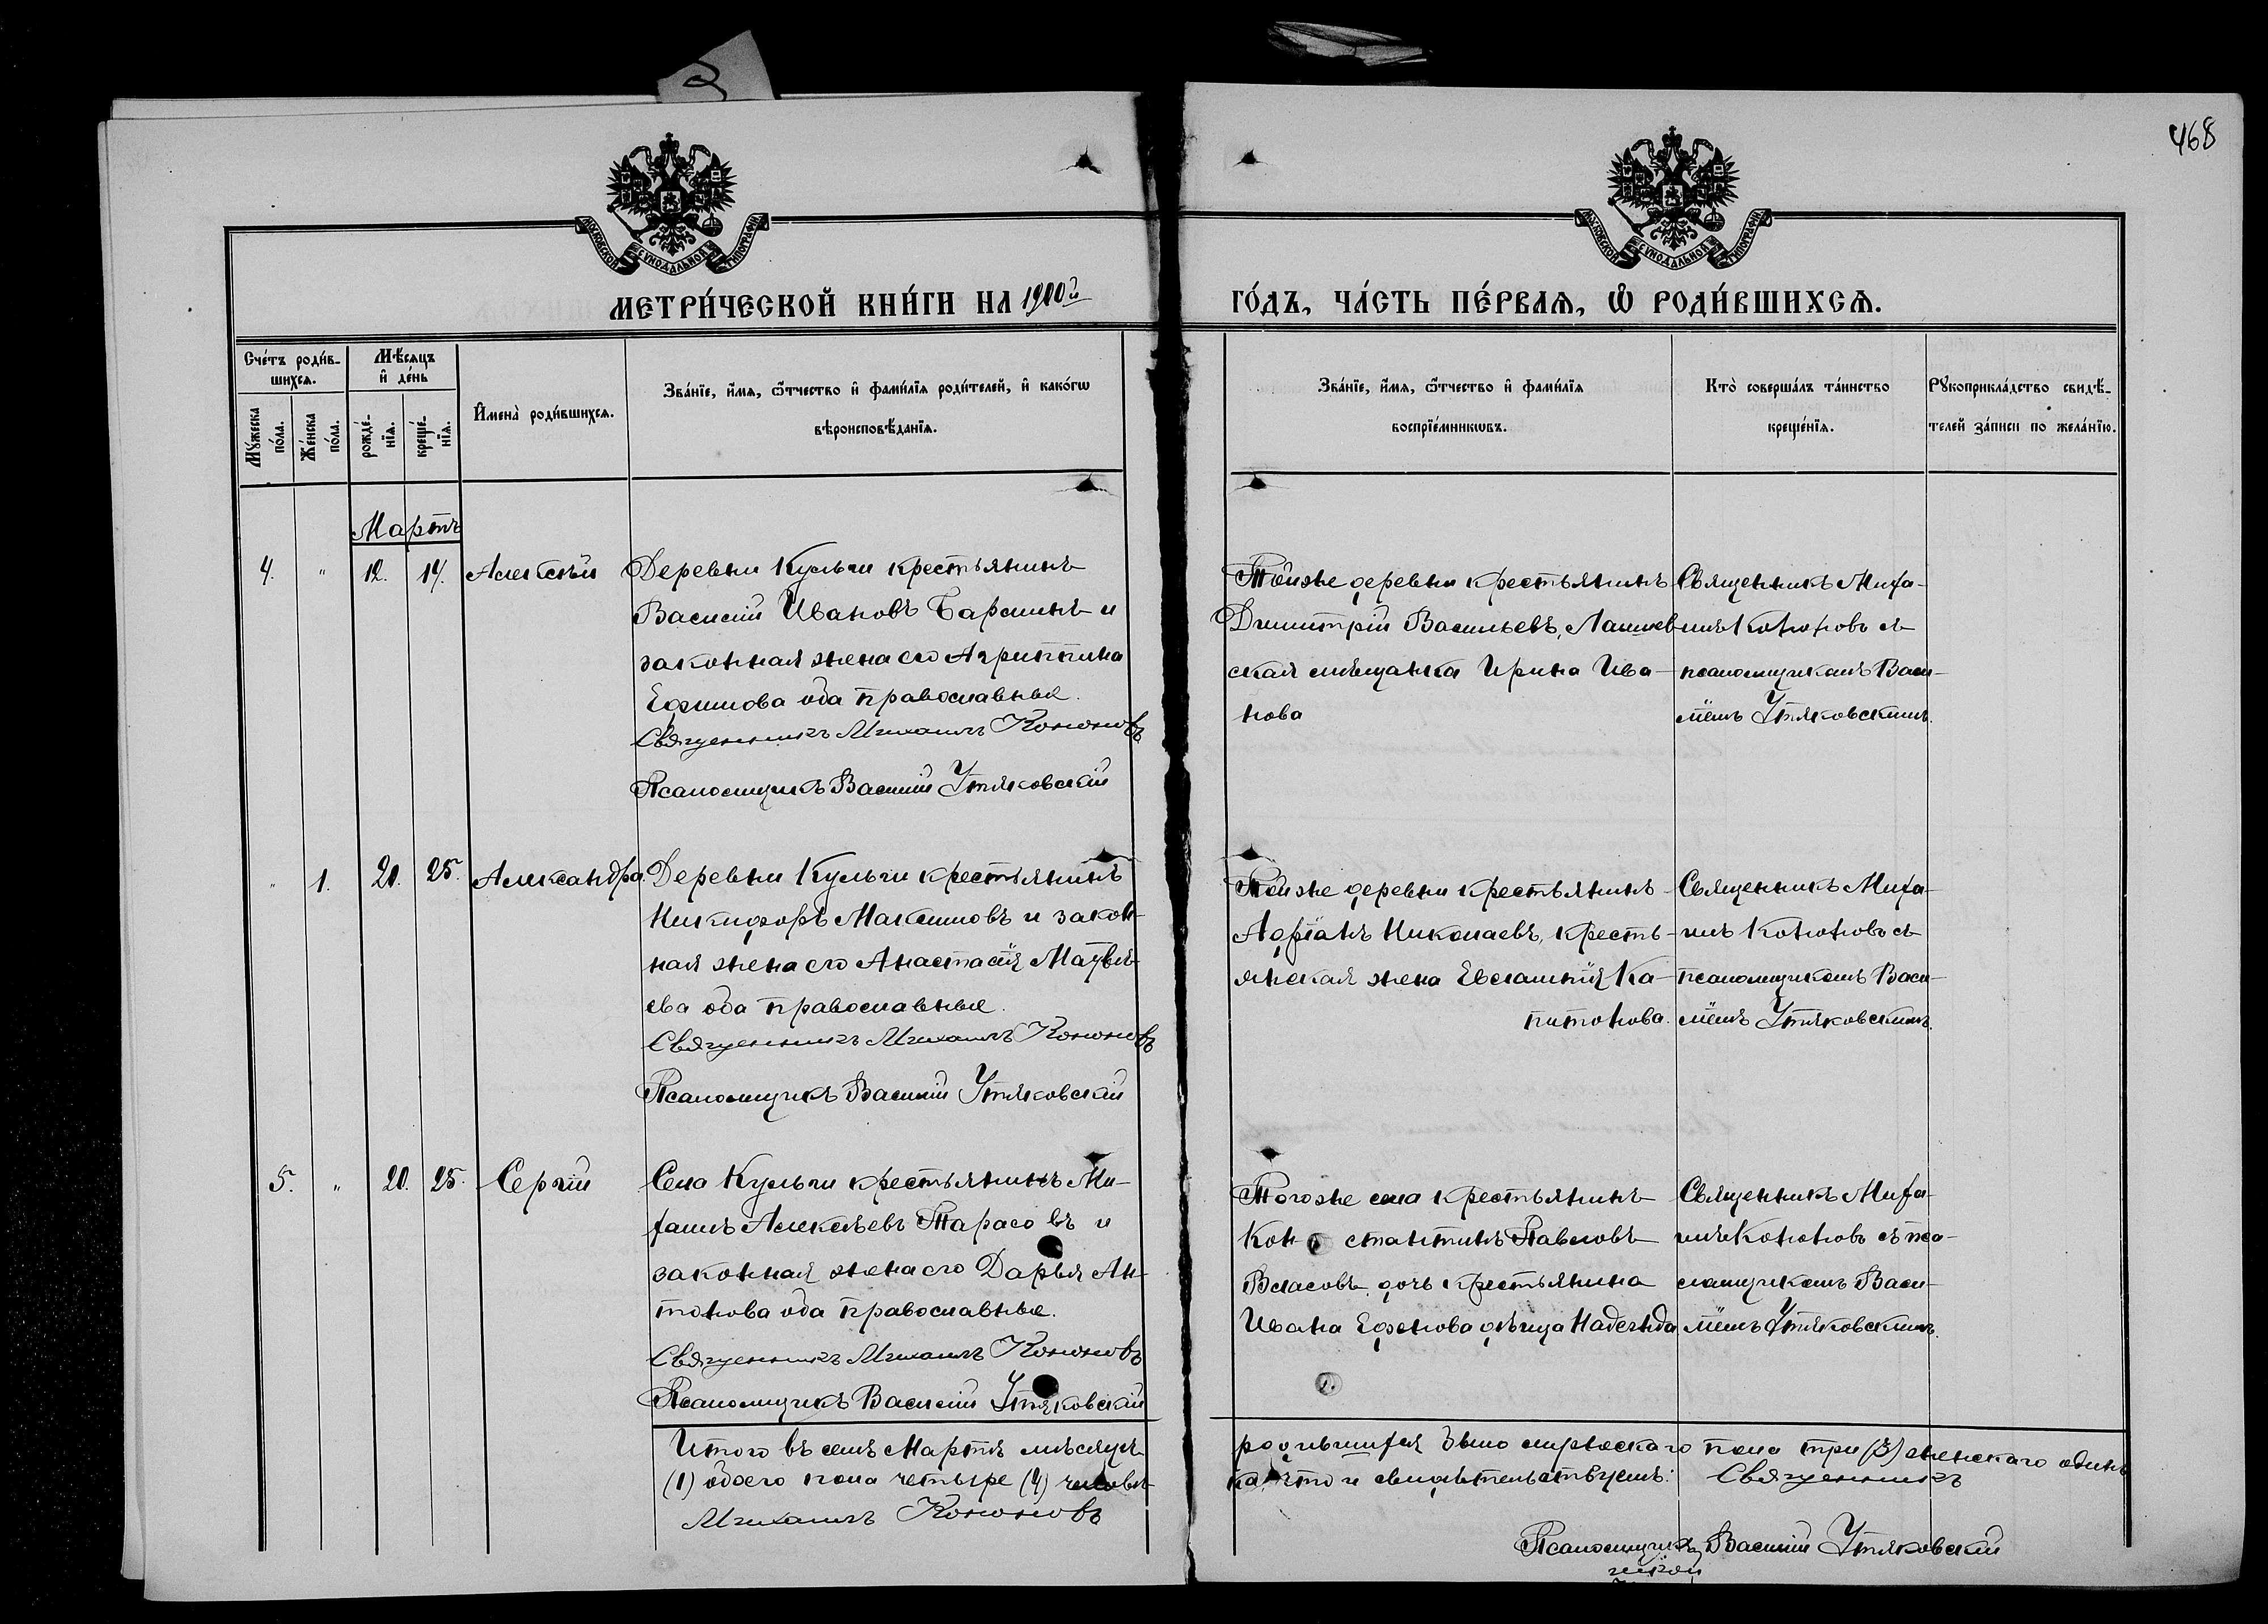 468
МОСКОВСКОЙ СѴНОДАЛЬНОЙ ТИПОГРАФІИ
МОСКОВСКОЙ СѴНОДАЛЬНОЙ ТИПОГРАФІИ
МЕТРИ́ЧЕСКОЙ КНИ́ГИ НА 1900й ГО́ДЪ, ЧА́СТЬ ПЕ́РВАѦ, Ѡ҆ РОДИ́ВШИХСѦ.
Сче́тъ роди́в-
шихсѧ.
Мѣ́сѧцъ
и҆ де́нь
Мꙋ́жеска
по́ла.
Же́нска
по́ла.
рожде́-
нїѧ.
креще́-
нїѧ.
И҆мена̀ роди́вшихсѧ.
Зва́нїе, и҆́мѧ, ѻ҆́тчество и҆ фами́лїѧ роди́телей, и҆ како́гѡ
вѣроисповѣ́данїѧ.
Зва́нїе, и҆́мѧ, ѻ҆́тчество и҆ фами́лїѧ
воспрїе́мникѡвъ.
Кто̀ соверша́лъ та́инство
креще́нїѧ.
Рꙋкоприкла́дство свидѣ́-
телей за́писи по жела́нїю.
Мартъ
4. " 12. 14. Алексѣй
Деревни Кульги крестьянинъ
Василій Ивановъ Барминъ и
законная жена его Агриппина
Ефимова оба православные.
Священникъ Михаилъ Кононовъ
Псаломщикъ Василій Утяковскій
Тойже деревни крестьянинъ
Димитрій Васильевъ, Лаишев
ская мѣщанка Ирина Ива-
нова
Священникъ Миха-
илъ Кононовъ съ
псаломщикомъ Васи-
ліемъ Утяковскимъ.
" 1. 20. 25. Александра.
Деревни Кульги крестьянинъ
Никифоръ Максимовъ и закон-
ная жена его Анастасія Матвѣ-
ева оба православные.
Священникъ Михаилъ Кононовъ
Псаломщикъ Василій Утяковскій
Тойже деревни крестьянинъ
Адріанъ Николаевъ, кресть-
янская жена Евлампія Ка-
питонова.
Священникъ Миха-
илъ Кононовъ съ
псаломщикомъ Васи-
ліемъ Утяковскимъ.
5. " 20. 25. Сергій
Села Кульги крестьянинъ Ми-
хаилъ Алексѣевъ Тарасовъ и
законная жена его Дарья Ан-
тонова оба православные.
Священникъ Михаилъ Кононовъ
Псаломщикъ Василій Утяковскій
Тогоже села крестьянинъ
Константинъ Павловъ
Власовъ, дочь крестьянина
Ивана Ефонова дѣвица Надежда
Священникъ Миха-
илъ Кононовъ съ пса-
ломщикомъ Васи-
ліемъ Утяковскимъ.
Итого въ семъ Мартѣ мѣсяцѣ родившихся было мужескаго пола три (3) женскаго одинъ
(1) обоего пола четыре (4) человѣ-
ка, что и свидѣтельствуемъ: Священникъ
Михаилъ Кононовъ
Псаломщикъ Василій Утяковскій